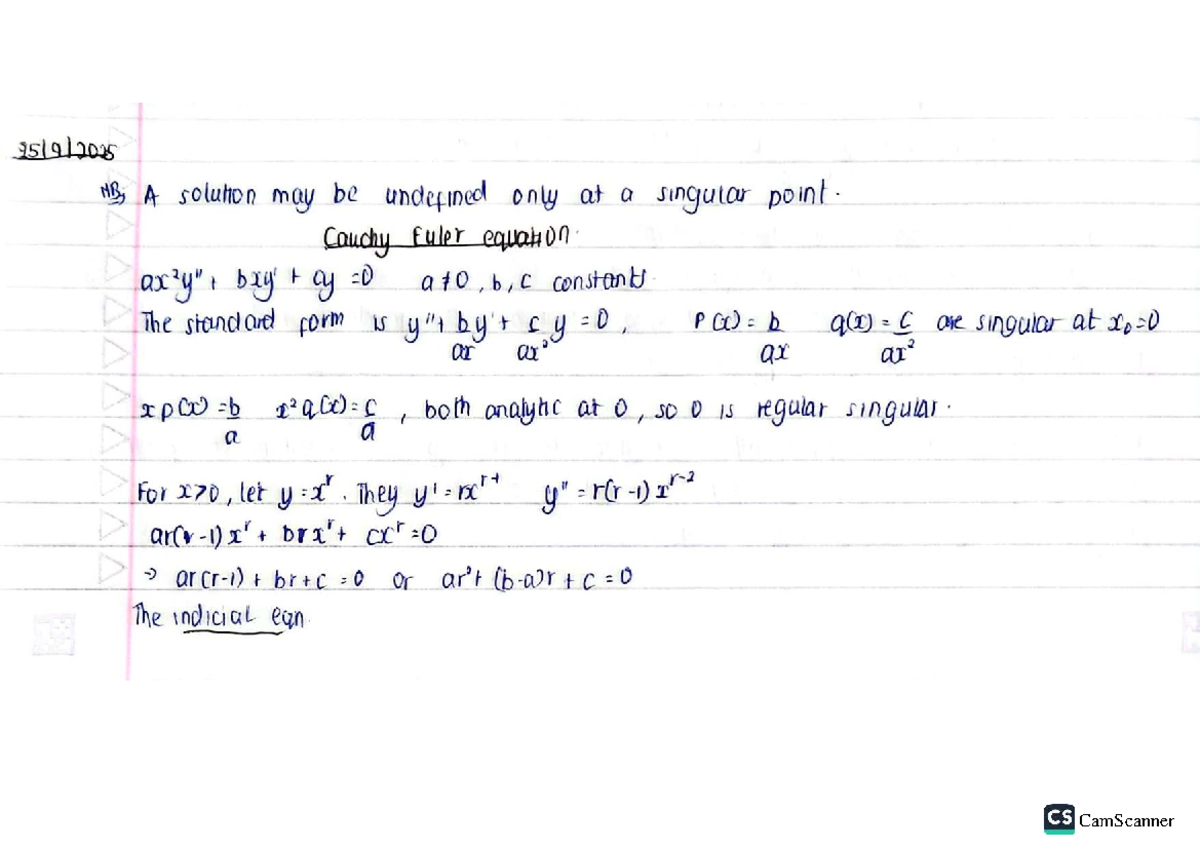 25/9/2025
NB; A solution may be undefined only at a singular point.
Cauchy Euler equation.
ax²y" + bxy' + cy = 0 a ≠ 0, b, c constants.
The standard form is y" + b/ax y' + c/ax² y = 0, P(x) = b/ax q(x) = c/ax² are singular at x₀=0
x p(x) = b/a x² q(x) = c/a, both analytic at 0, so 0 is regular singular.
For x>0, let y = xʳ. They y' = rxʳ⁻¹ y" = r(r-1)xʳ⁻²
ar(r-1)xʳ + brxʳ + cxʳ = 0
→ ar(r-1) + br + c = 0 or ar² + (b-a)r + c = 0
The indicial eqn.
CS CamScanner